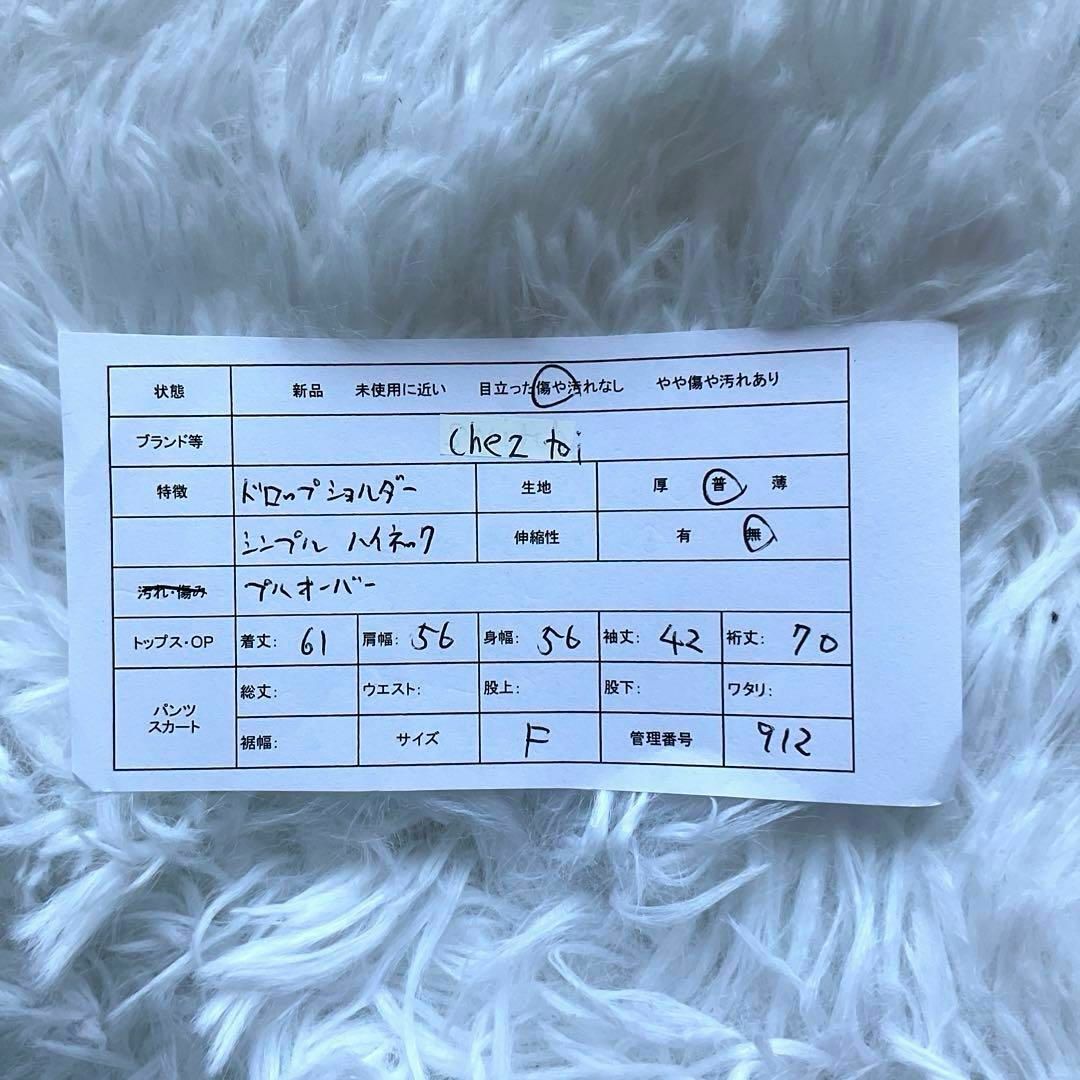 状態 新品 未使用に近い 目立った傷や汚れなし やや傷や汚れあり
ブランド等 chez toi
特徴 ドロップショルダー 生地 厚 普 薄
シンプル ハイネック 伸縮性 有 無
汚れ・傷み プルオーバー
トップス・OP 着丈: 61 肩幅: 56 身幅: 56 袖丈: 42 裄丈: 70
パンツ スカート 総丈: ウエスト: 股上: 股下: ワタリ:
裾幅: サイズ F 管理番号 912